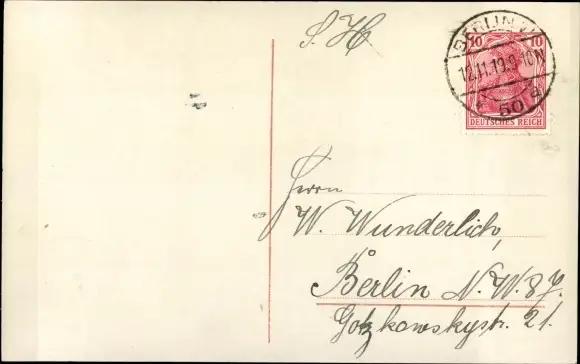 S. H.
10 10
BERLIN
12.11.19.9-10N
50 a
DEUTSCHES REICH
Herrn
W. Wunderlich,
Berlin N.W. 87.
Gotzkowskystr. 21.